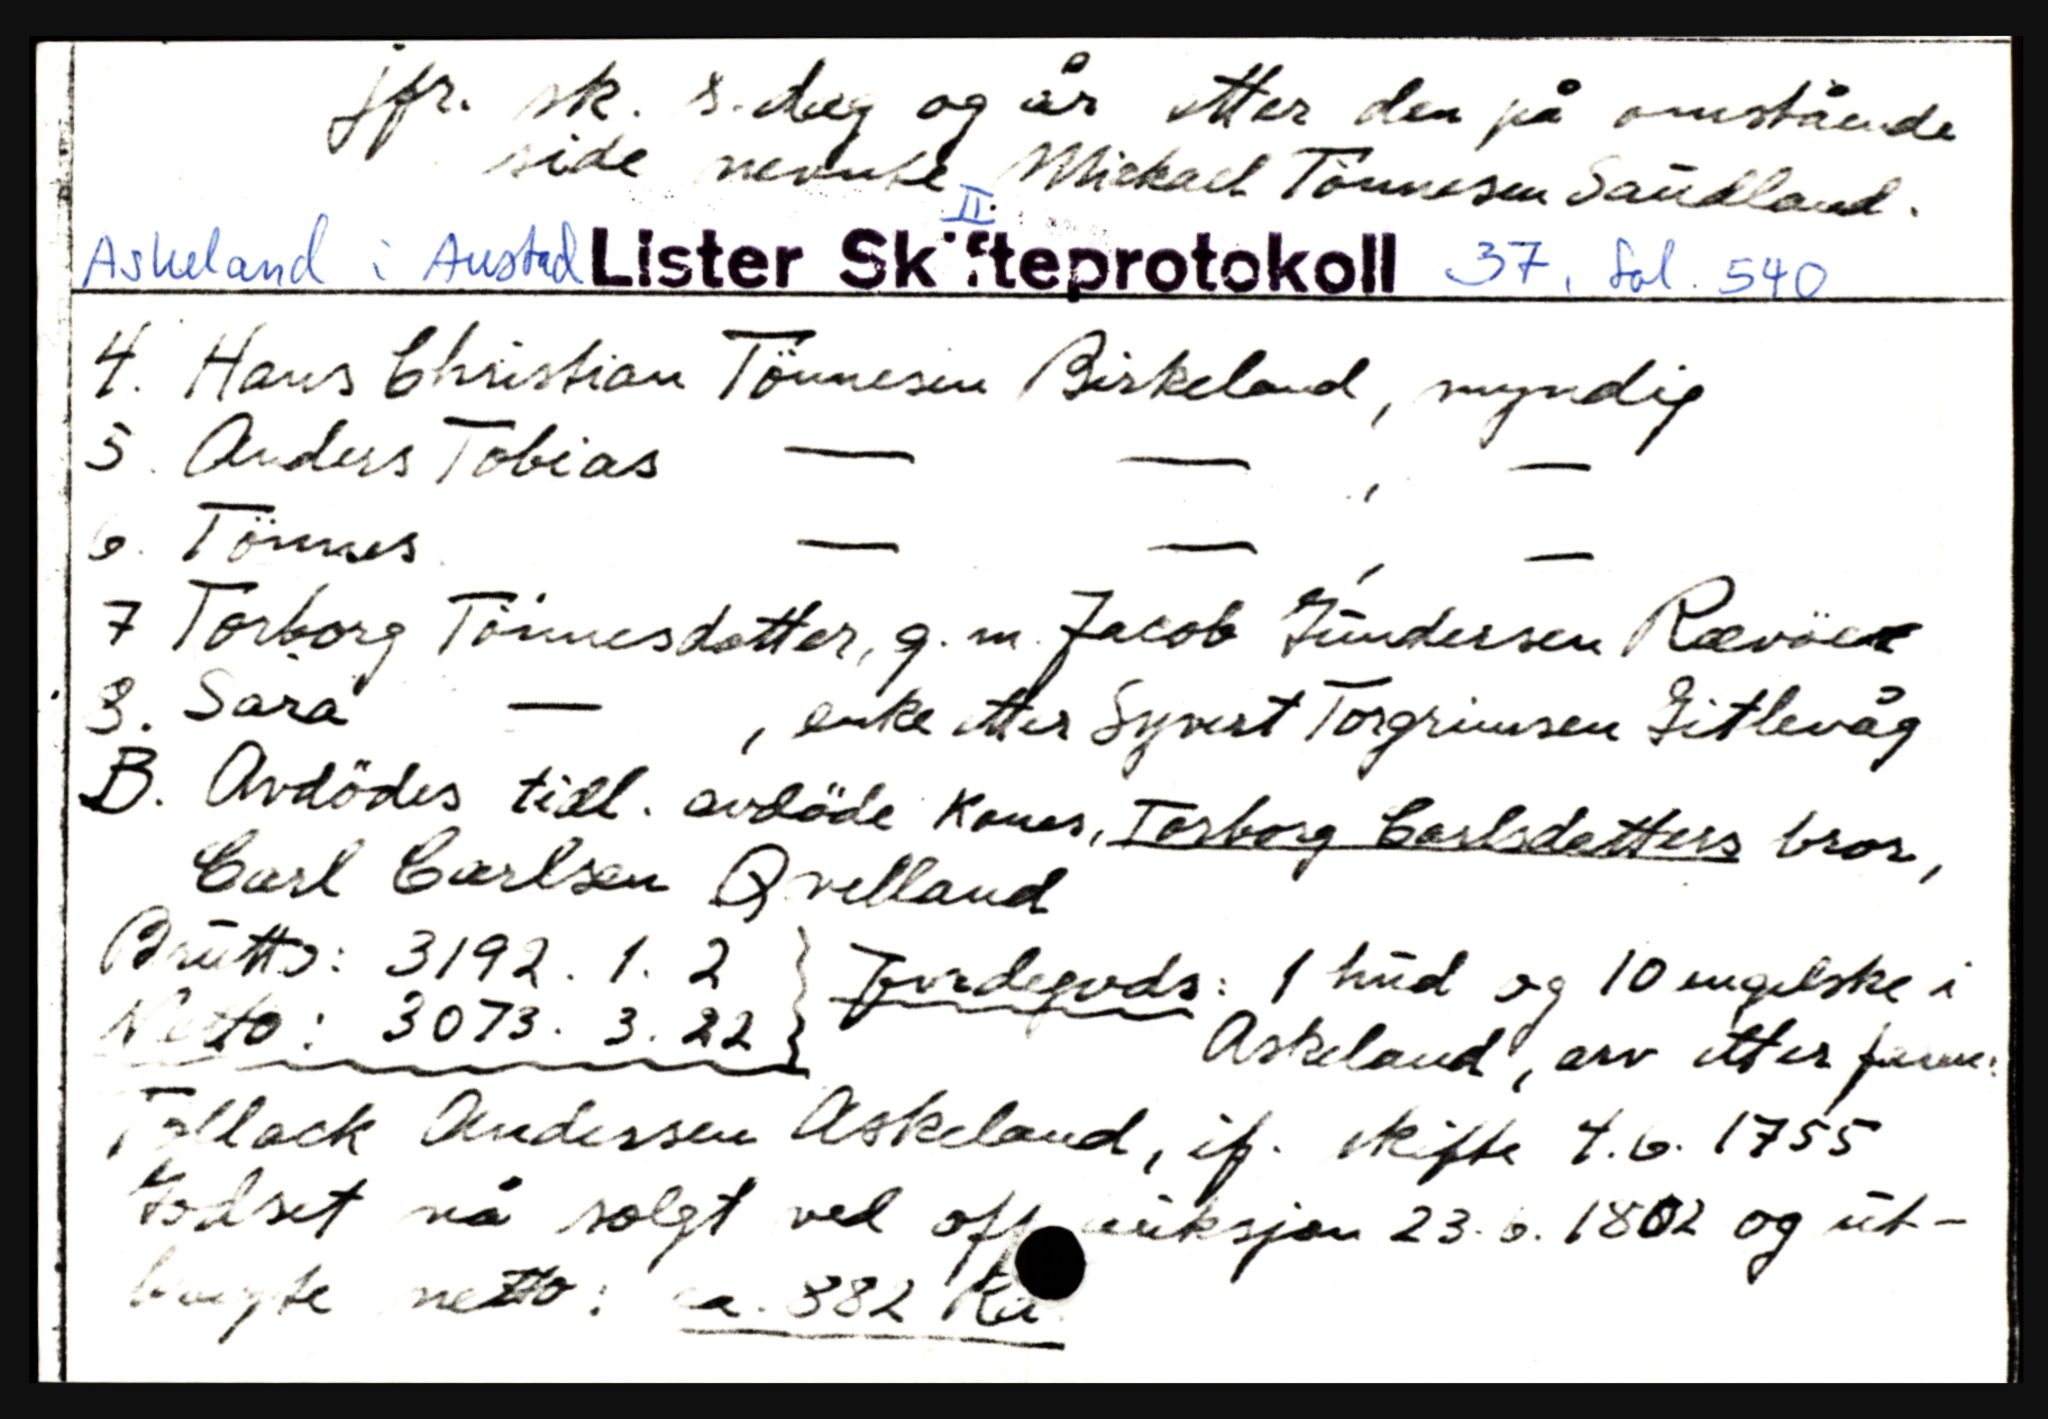 jfr. sk. s. dag og år etter den på omstående
side nevnte Mickael Tönnesen Saudland.
II
Askeland i Austad Lister Skifteprotokoll 37, fol. 540
4. Hans Christian Tönnesen Birkeland, myndig
5. Anders Tobias — — , —
6. Tönnes — — , —
7 Torborg Tönnesdatter, g. m. Jacob Gundersen Rævöen
8. Sara — , enke etter Syvert Torgrimsen Gitlevåg
B. Avdödes tidl. avdöde Kones, Torborg Carlsdatters bror,
Carl Carlsen Qvelland
Brutto: 3192. 1. 2 } Jordegods: 1 hud og 10 engelske i
Netto: 3073. 3. 22 } Askeland, arv etter farm.
Tollack Andersen Askeland, if. skifte 4.6. 1755
Godset nå solgt ved off auksjon 23.6. 1802 og ut-
bragte netto: ca. 882 Rd.